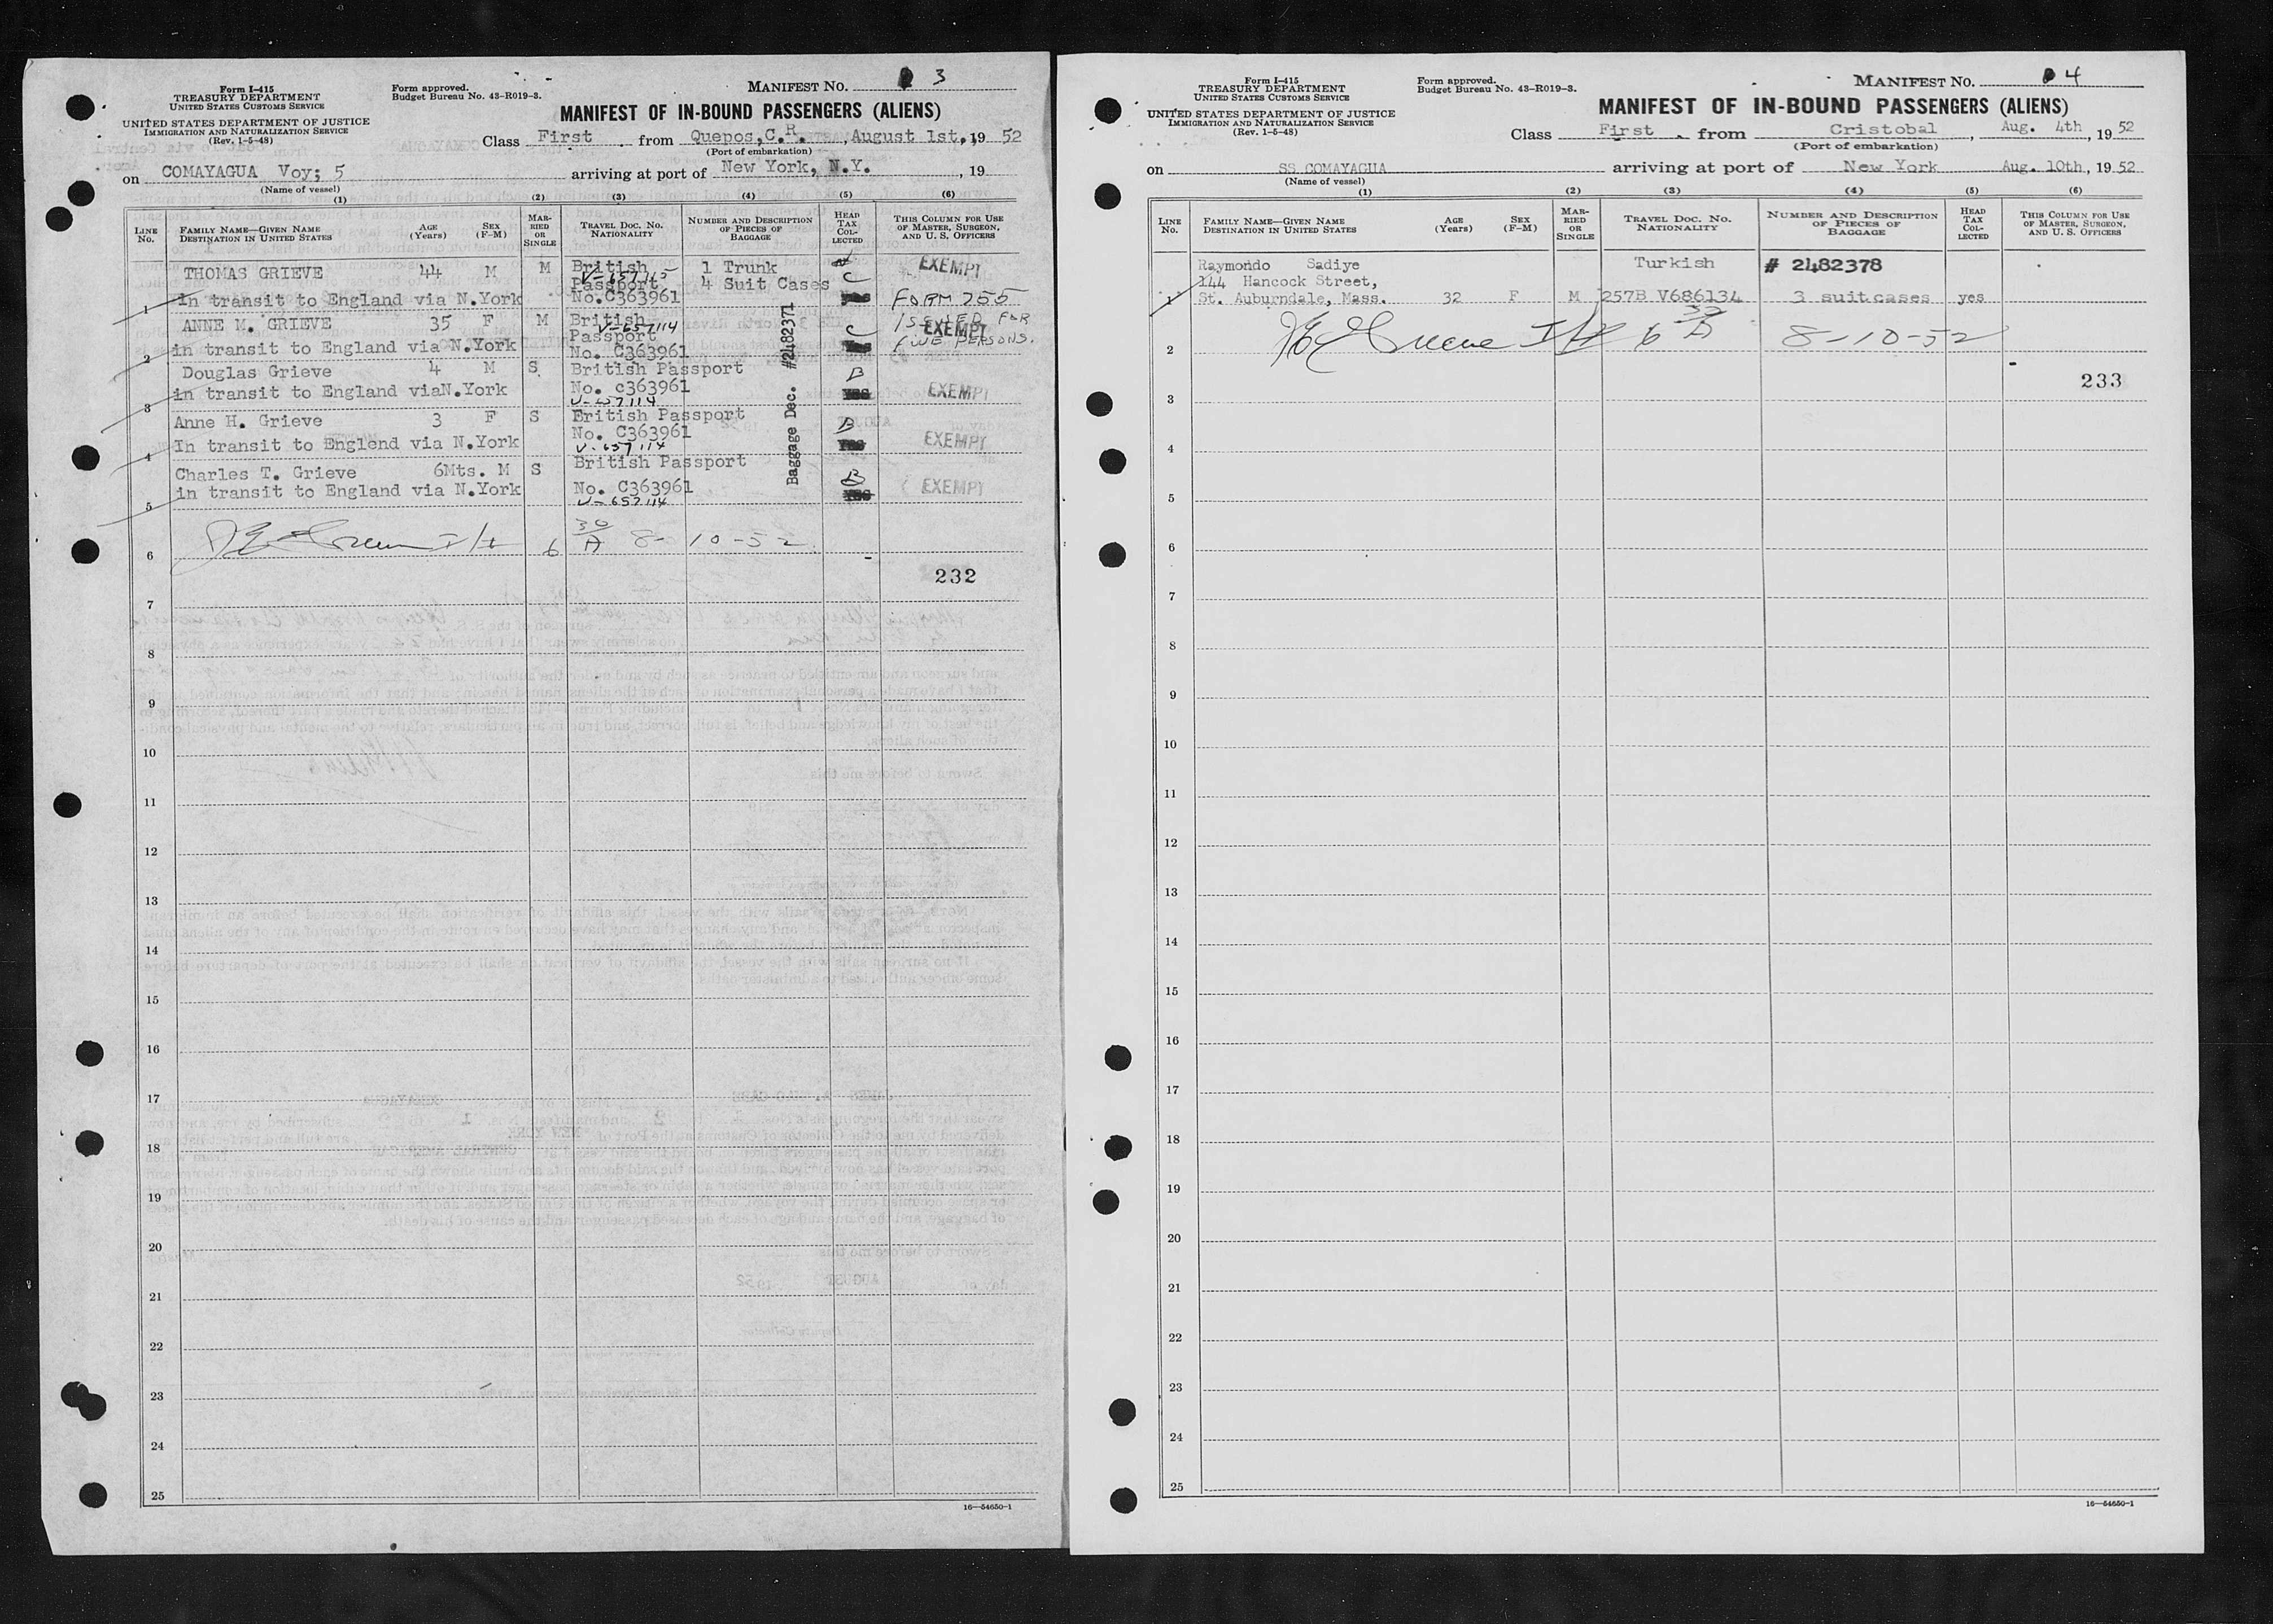 Form I-415
TREASURY DEPARTMENT
UNITED STATES CUSTOMS SERVICE
UNITED STATES DEPARTMENT OF JUSTICE
IMMIGRATION AND NATURALIZATION SERVICE
(Rev. 1-5-48)
Form approved.
Budget Bureau No. 43-R019-3.
MANIFEST NO. 3
MANIFEST OF IN-BOUND PASSENGERS (ALIENS)
Class First from Quepos, C.R. , August 1st., 19 52
(Port of embarkation)
on COMAYAGUA Voy; 5 arriving at port of New York, N.Y. , 19
(Name of vessel)
(1) (2) (3) (4) (5) (6)
LINE No. FAMILY NAME—GIVEN NAME DESTINATION IN UNITED STATES AGE (Years) SEX (F-M) MARRIED OR SINGLE TRAVEL DOC. NO. NATIONALITY NUMBER AND DESCRIPTION OF PIECES OF BAGGAGE HEAD TAX COLLECTED THIS COLUMN FOR USE OF MASTER, SURGEON, AND U. S. OFFICERS
THOMAS GRIEVE 44 M M British 1 Trunk EXEMPT
V-657115
Passport 4 Suit Cases C
1 in transit to England via N.York No.C363961 Yes FORM 255
ANNE M. GRIEVE 35 F M British ISSUED FOR
V-657114
Passport C EXEMPT
2 in transit to England via N.York No. C363961 Yes FIVE PERSONS.
Douglas Grieve 4 M S British Passport B
in transit to England viaN.York No. c363961 YES EXEMPT
3 V-657114
Anne H. Grieve 3 F S British Passport B
No. C363961
4 In transit to Englend via N.York V-657114 YES EXEMPT
Charles T. Grieve 6Mts. M S British Passport B
in transit to England via N.York No. C363961 YES EXEMPT
5 V-657114
Baggage Dec. #2482371
6 6 30/A 8-10-52
232
7
8
9
10
11
12
13
14
15
16
17
18
19
20
21
22
23
24
25
16—54650-1
Form I-415
TREASURY DEPARTMENT
UNITED STATES CUSTOMS SERVICE
UNITED STATES DEPARTMENT OF JUSTICE
IMMIGRATION AND NATURALIZATION SERVICE
(Rev. 1-5-48)
Form approved.
Budget Bureau No. 43-R019-3.
MANIFEST NO. 4
MANIFEST OF IN-BOUND PASSENGERS (ALIENS)
Class First from Cristobal , Aug. 4th , 19 52
(Port of embarkation)
on SS COMAYAGUA arriving at port of New York Aug. 10th , 19 52
(Name of vessel)
(1) (2) (3) (4) (5) (6)
LINE No. FAMILY NAME—GIVEN NAME DESTINATION IN UNITED STATES AGE (Years) SEX (F-M) MARRIED OR SINGLE TRAVEL DOC. NO. NATIONALITY NUMBER AND DESCRIPTION OF PIECES OF BAGGAGE HEAD TAX COLLECTED THIS COLUMN FOR USE OF MASTER, SURGEON, AND U. S. OFFICERS
Raymondo Sadiye Turkish # 2482378
144 Hancock Street,
1 St. Auburndale, Mass. 32 F M 257B V686134 3 suitcases yes
2 6 8-10-52
233
3
4
5
6
7
8
9
10
11
12
13
14
15
16
17
18
19
20
21
22
23
24
25
16—54650-1